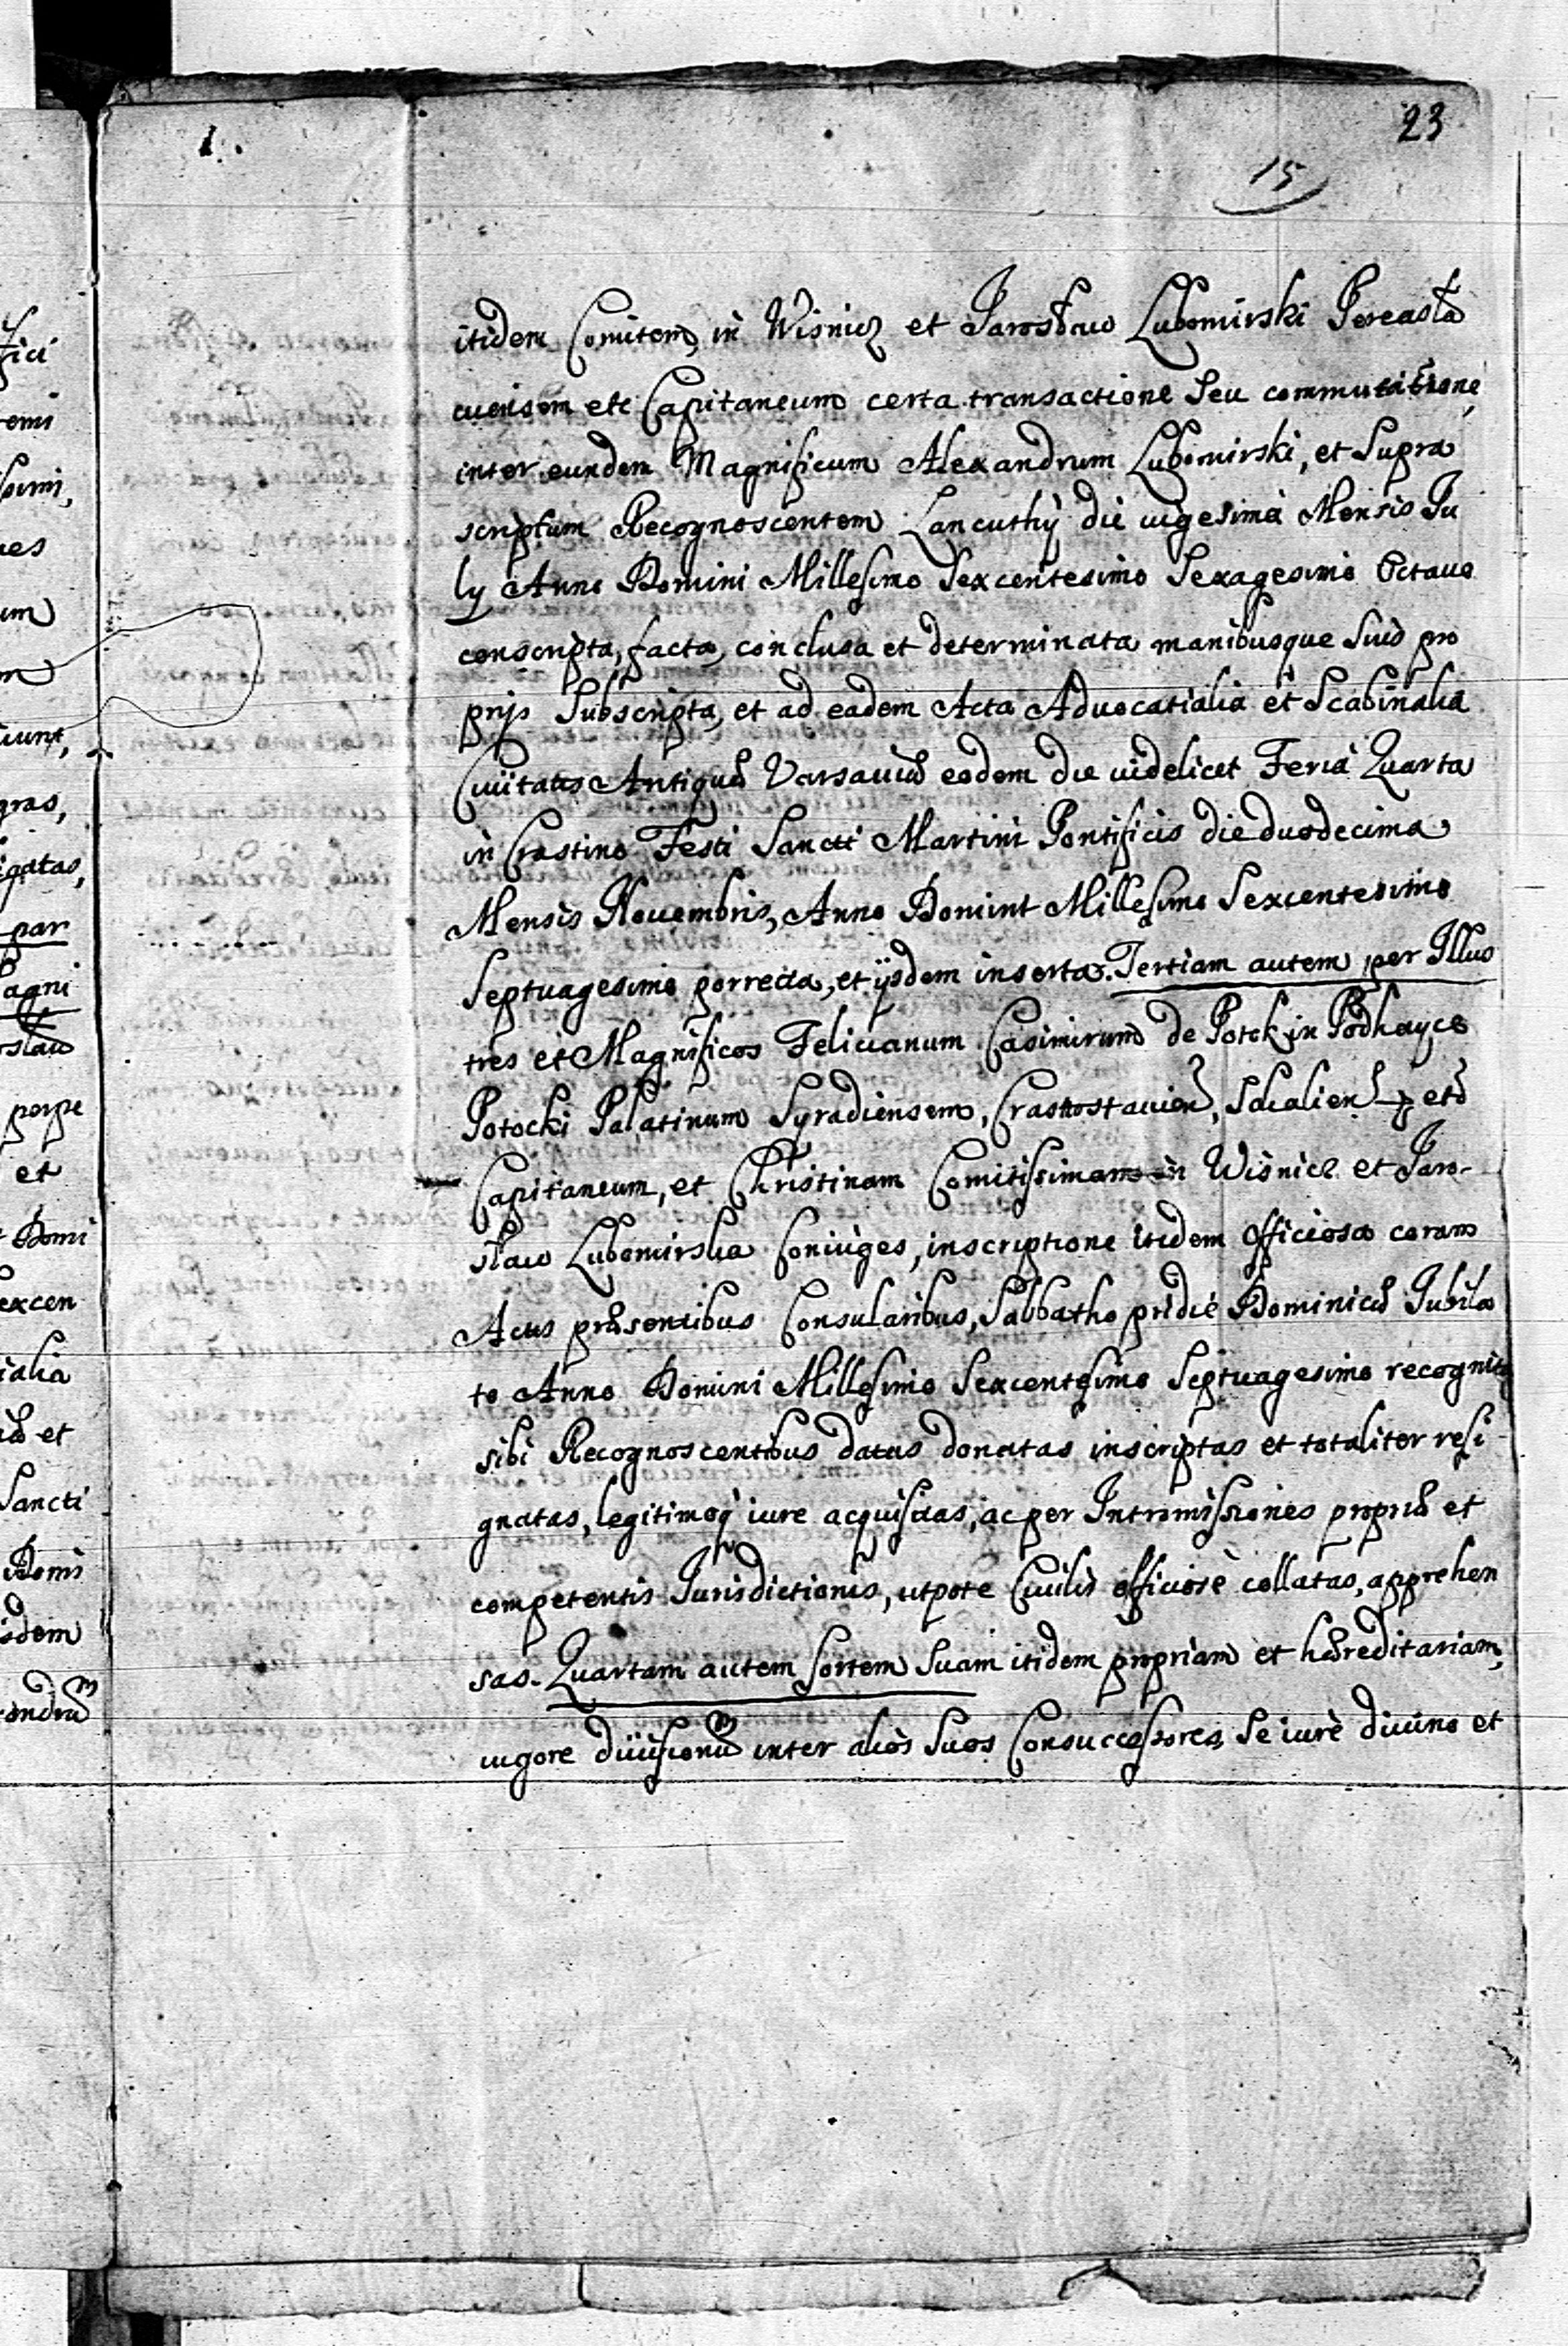 1.
23
15
itidem Comitem in Wisnicz et Jarosław Lubomirski Pereasła
cuensem etc Capitaneum certa transactione Seu commutatione
inter eundem Magnificum Alexandrum Lubomirski, et Supra
scriptum Recognoscentem Lancuthÿ die uigesima Mensis Ju
ly Anno Domini Millesimo Sexcentesimo Sexagesimo Octauo
conscripta, facta, conclusa et determinata manibusque Suis pro
prijs Subscripta, et ad eadem Acta Aduocatialia et Scabinalia
Ciuitatis Antiquæ Varsauiæ eodem die uidelicet Feria Quarta
in Crastino Festi Sancti Martini Pontificis die duodecima
Mensis Nouembris, Anno Domini Millesimo Sexcentesimo
Septuagesimo porrecta, et ijsdem inserta. Tertiam autem per Illus
tres et Magnificos Felicianum Casimirum de Potok in Podhayce
Potocki Palatinum Syradiensem, Crasnostauien, Socalien etc
Capitaneum, et Christinam Comitissimam in Wisnicz et Jaro-
sław Lubomirska Coniuges, inscriptione itidem Officiosa coram
Actis præsentibus Consularibus, Sabbatho pridie Dominicæ Jubila
te Anno Domini Millesimo Sexcentesimo Septuagesimo recognita
sibi Recognoscentibus datas donatas inscriptas et totaliter resi
gnatas, legitimoq iure acquisitas, ac per Intromissiones propriæ et
competentis Jurisdictionis, utpote Ciuilis officiose collatas, apprehen
sas. Quartam autem sortem Suam itidem propriam et hæreditariam,
uigore diuisionum inter alios Suos Consuccessores, Se iure diuino et